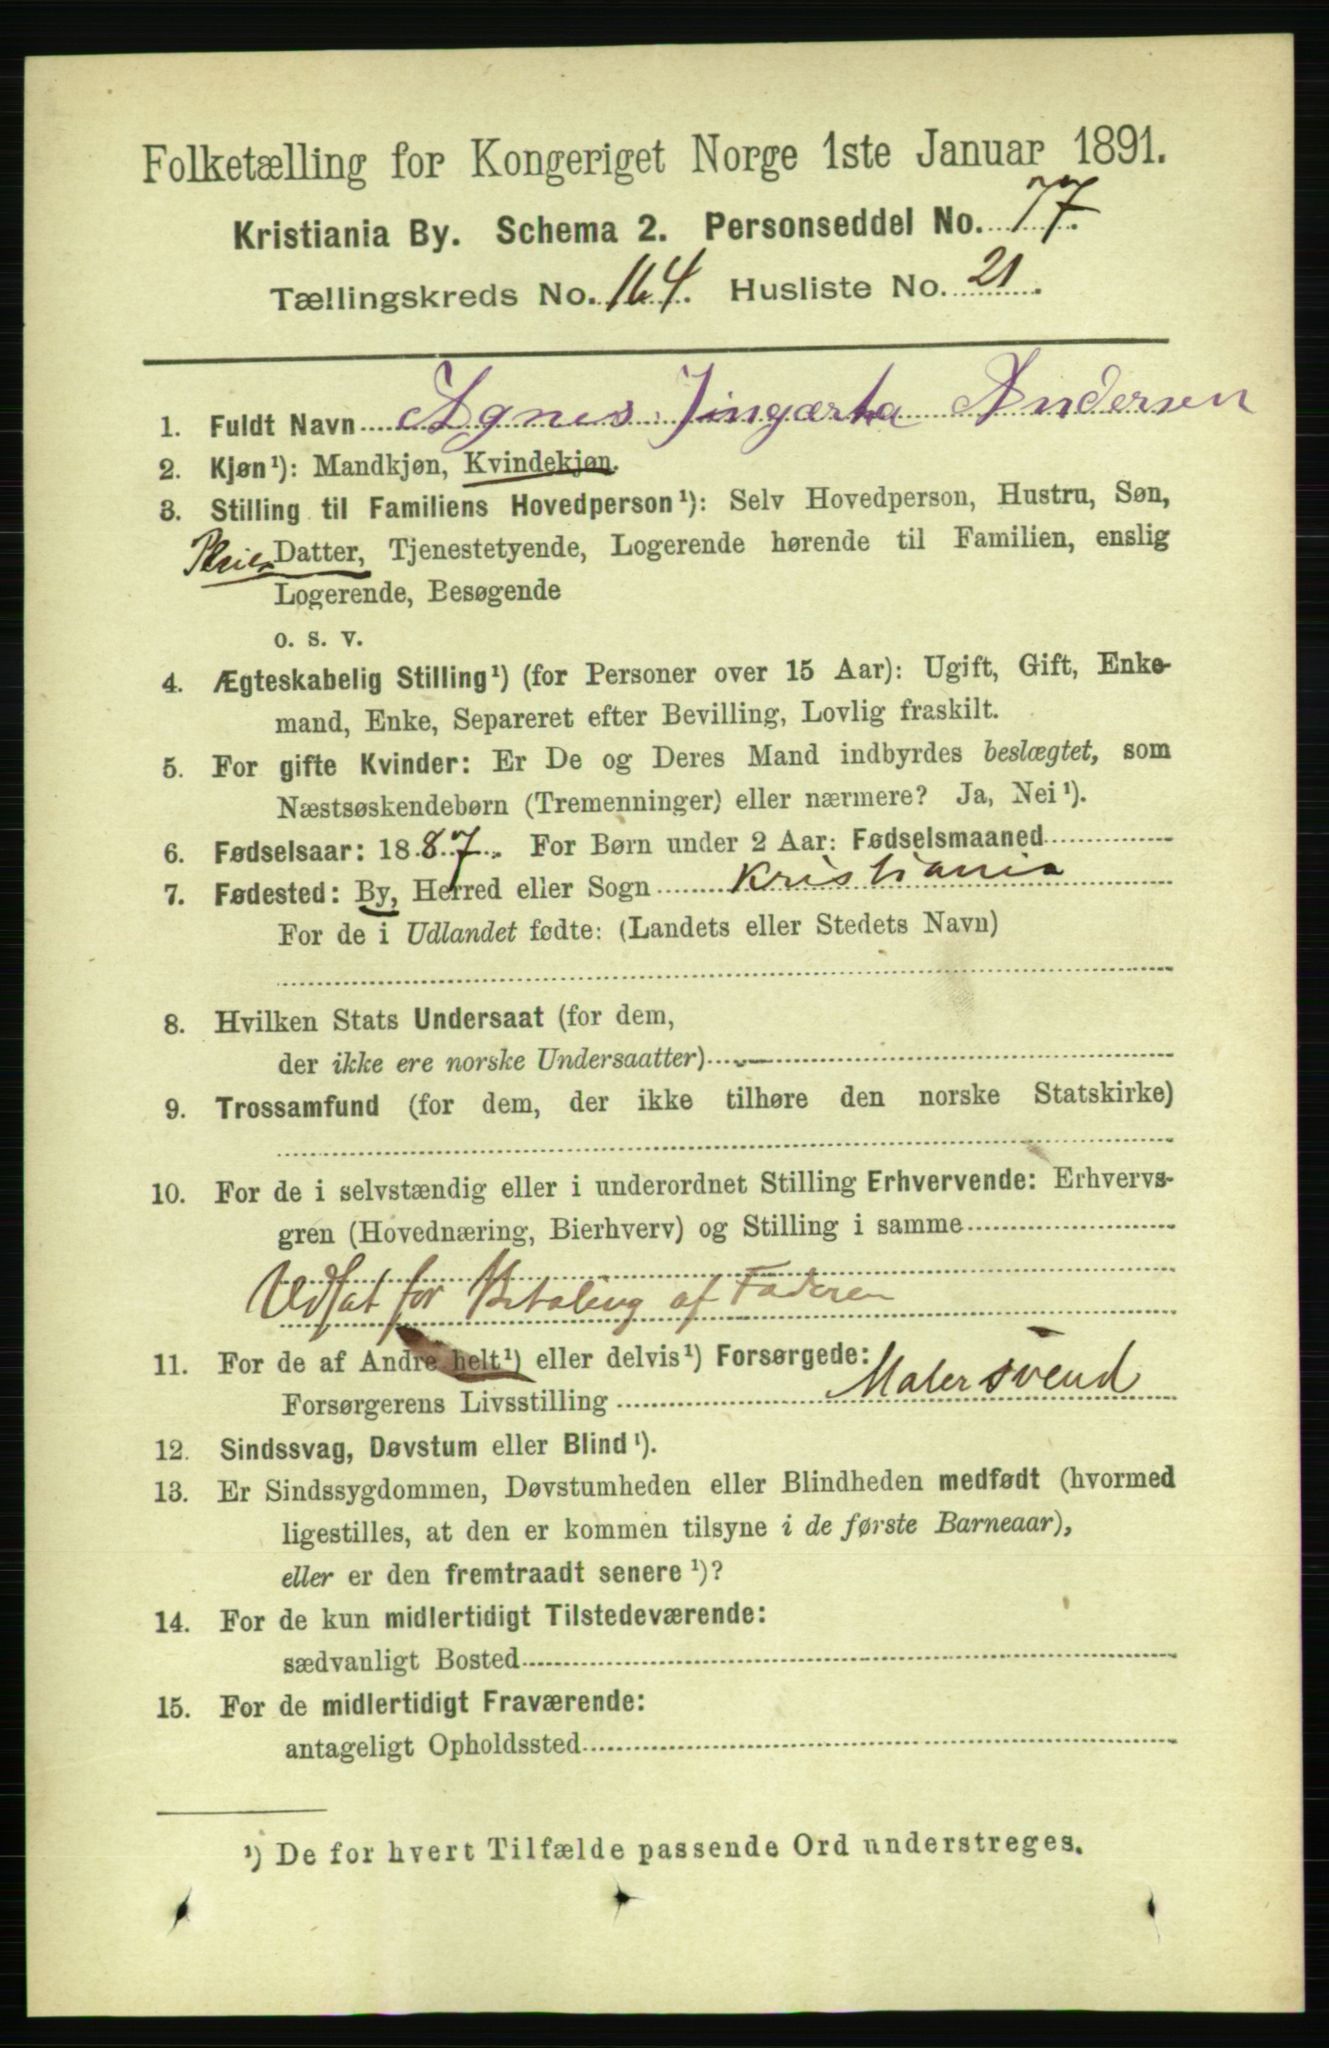 Folketælling for Kongeriget Norge 1ste Januar 1891.
Kristiania By. Schema 2. Personseddel No. 77.
Tællingskreds No. 164. Husliste No. 21.
1. Fuldt Navn Agnes Jingærta Andersen
2. Kjøn¹): Mandkjøn, Kvindekjøn.
3. Stilling til Familiens Hovedperson¹): Selv Hovedperson, Hustru, Søn,
Pleie Datter, Tjenestetyende, Logerende hørende til Familien, enslig
Logerende, Besøgende
o. s. v.
4. Ægteskabelig Stilling¹) (for Personer over 15 Aar): Ugift, Gift, Enke-
mand, Enke, Separeret efter Bevilling, Lovlig fraskilt.
5. For gifte Kvinder: Er De og Deres Mand indbyrdes beslægtet, som
Næstsøskendebørn (Tremenninger) eller nærmere? Ja, Nei¹).
6. Fødselsaar: 1887. For Børn under 2 Aar: Fødselsmaaned
7. Fødested: By, Herred eller Sogn Kristiania
For de i Udlandet fødte: (Landets eller Stedets Navn)
8. Hvilken Stats Undersaat (for dem,
der ikke ere norske Undersaatter)
9. Trossamfund (for dem, der ikke tilhøre den norske Statskirke)
10. For de i selvstændig eller i underordnet Stilling Erhvervende: Erhvervs-
gren (Hovednæring, Bierhverv) og Stilling i samme
Udsat for Betaling af Faderen
11. For de af Andre helt¹) eller delvis¹) Forsørgede:
Forsørgerens Livsstilling Malersvend
12. Sindssvag, Døvstum eller Blind¹).
13. Er Sindssygdommen, Døvstumheden eller Blindheden medfødt (hvormed
ligestilles, at den er kommen tilsyne i de første Barneaar),
eller er den fremtraadt senere¹)?
14. For de kun midlertidigt Tilstedeværende:
sædvanligt Bosted
15. For de midlertidigt Fraværende:
antageligt Opholdssted
¹) De for hvert Tilfælde passende Ord understreges.